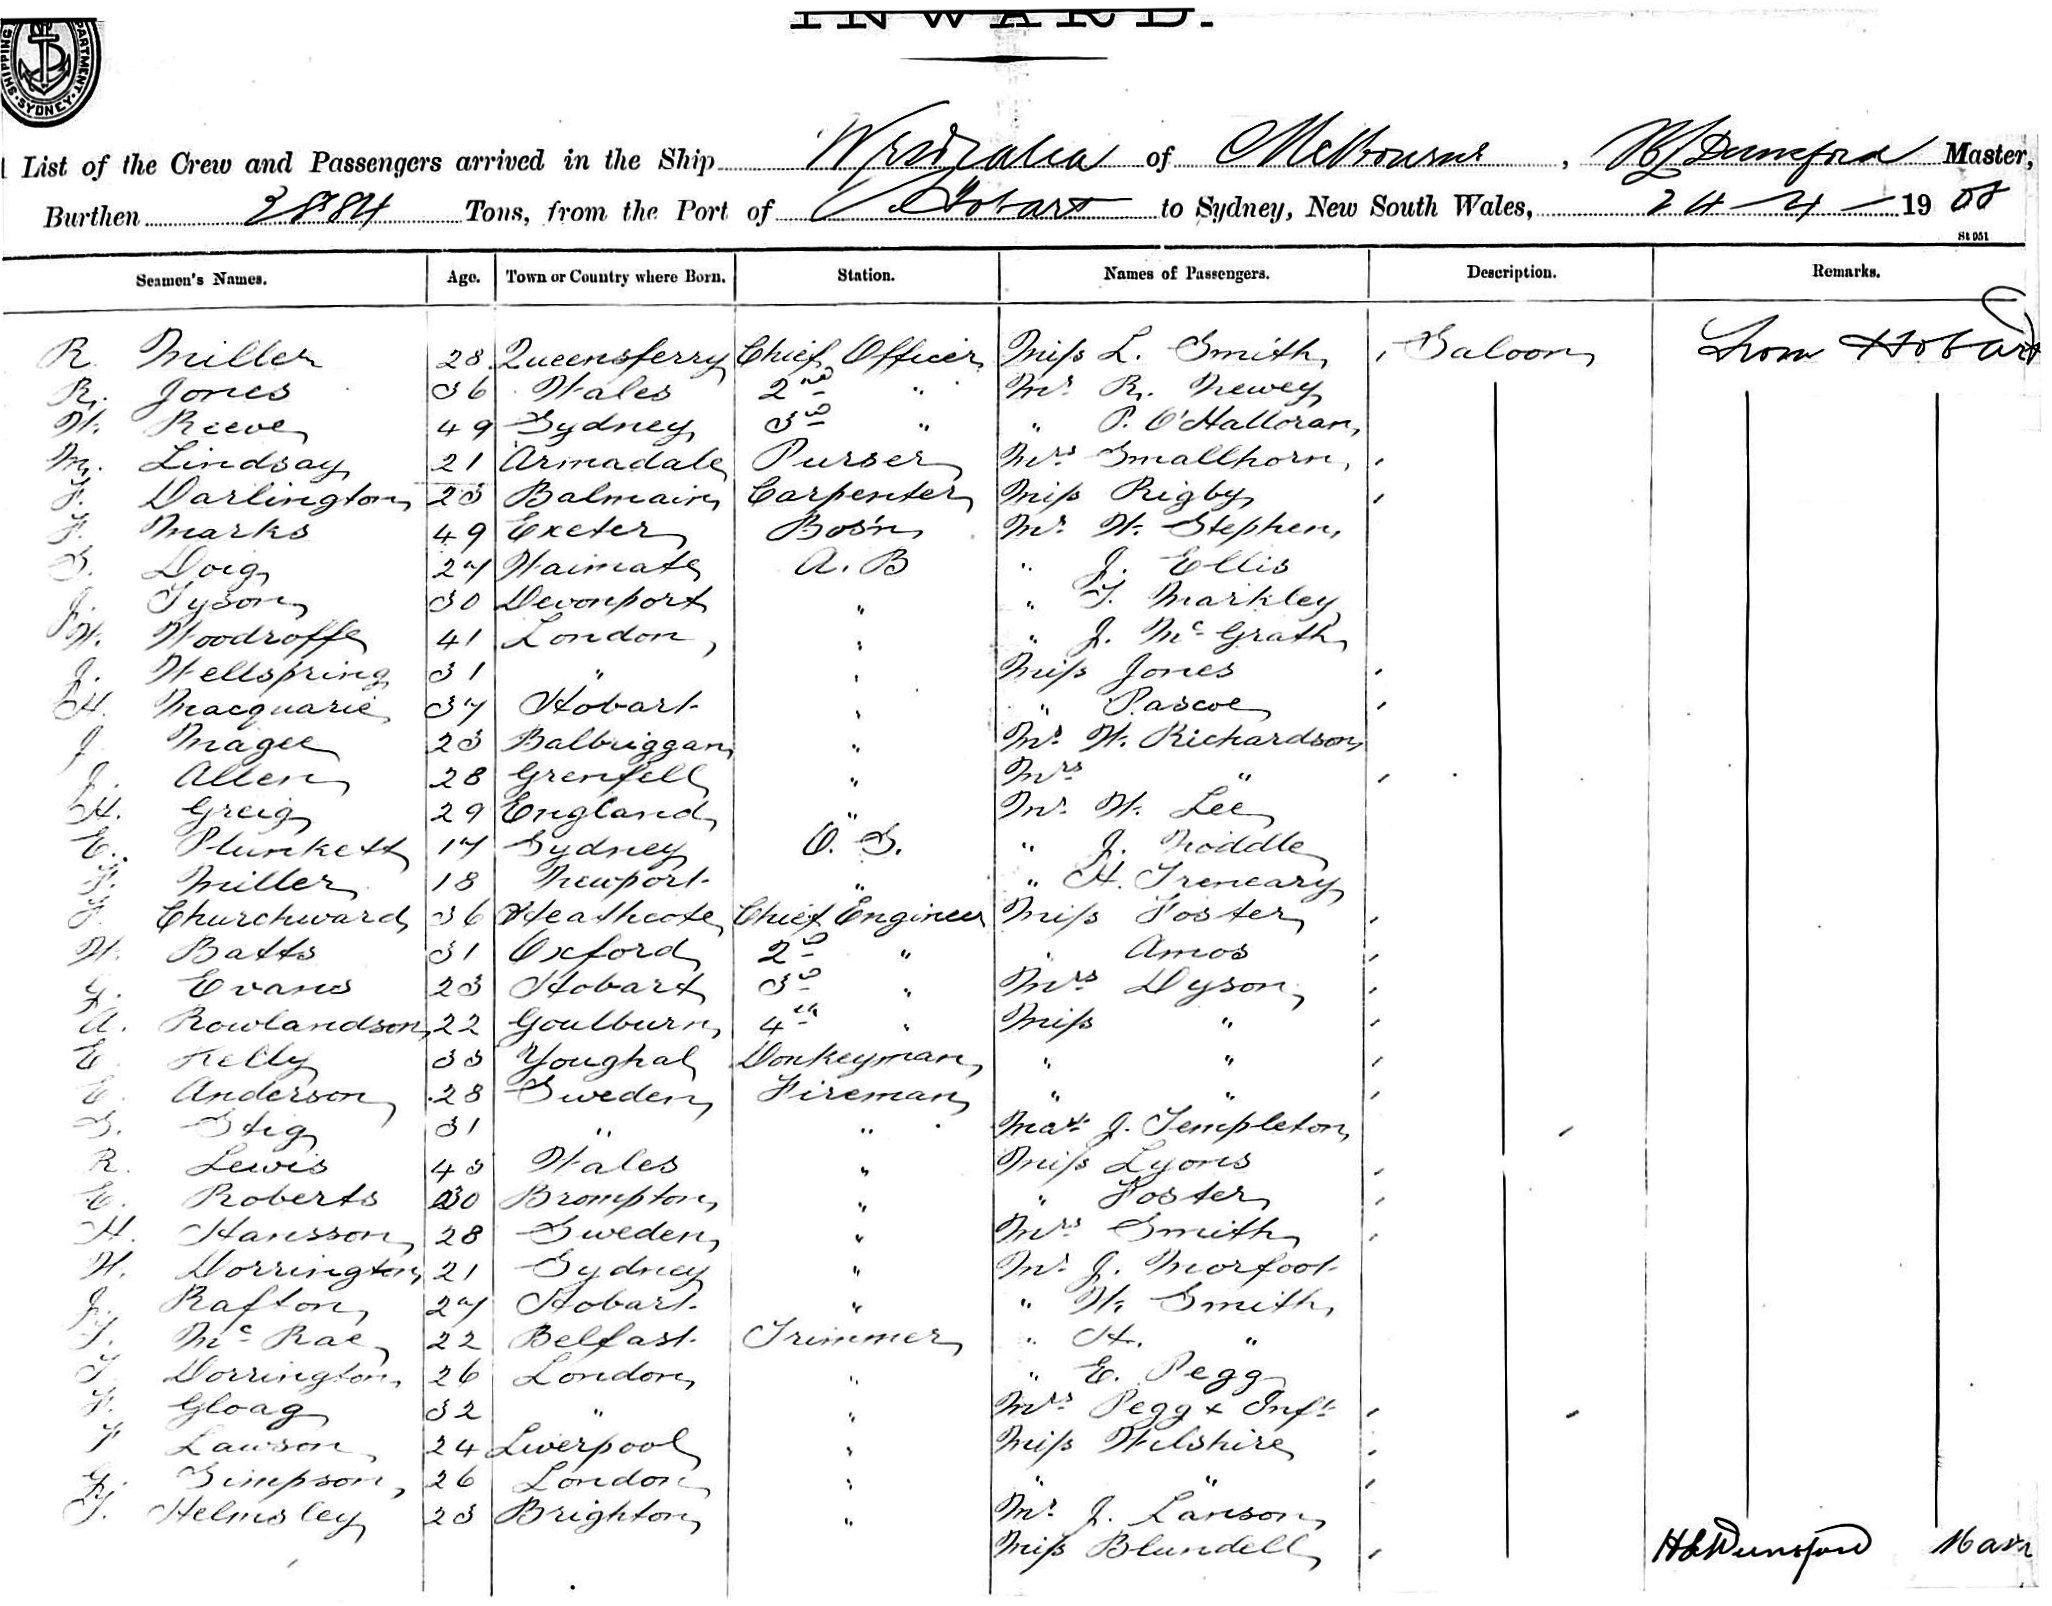 INWARD.
SHIPPING DEPARTMENT SYDNEY
List of the Crew and Passengers arrived in the Ship Westralia of Melbourne, Dunsford Master,
Burthen 2884 Tons, from the Port of Hobart to Sydney, New South Wales, 24-4-1908
St 051
Seamen's Names. Age. Town or Country where Born. Station. Names of Passengers. Description. Remarks.
R. Miller 28 Queensferry Chief Officer Miss L. Smith Saloon From Hobart
R. Jones 36 Wales 2nd " Mr R. Newey
W. Reeve 49 Sydney 3rd " " P. O'Halloran
M. Lindsay 21 Armadale Purser Mrs Smallhorn
F. Darlington 23 Balmain Carpenter Miss Rigby
F. Marks 49 Exeter Bos'n Mr W. Stephen
S. Doig 27 Waimate A. B " J. Ellis
J. Tyson 30 Devonport " " T. Markley
W. Woodroffe 41 London " " J. McGrath
J. Wellspring 31 " " Miss Jones
H. Macquarie 37 Hobart " " Pascoe
J. Magee 23 Balbriggan " Mr W. Richardson
J. Allen 28 Grenfell " Mrs "
H. Greig 29 England " Mr W. Lee
E. Plunkett 17 Sydney O. S. " J. Noddle
F. Miller 18 Newport " " H. Treneary
F. Churchward 36 Heathcote Chief Engineer Miss Foster
W. Batts 31 Oxford 2nd " " Amos
G. Evans 23 Hobart 3rd " Mrs Dyson
A. Rowlandson 22 Goulburn 4th " Miss "
E. Kelly 33 Youghal Donkeyman " "
E. Anderson 28 Sweden Fireman " "
S. Stig 31 " " Mast J. Templeton
R. Lewis 43 Wales " Miss Lyons
E. Roberts 30 Brompton " " Foster
H. Hansson 28 Sweden " Mrs Smith
W. Dorrington 21 Sydney " Mr J. Morfoot
J. Rafton 27 Hobart " " W. Smith
T. McRae 22 Belfast Trimmer " H. "
T. Dorrington 26 London " " E. Pegg
F. Gloag 32 " " Mrs Pegg & Inft
F. Lawson 24 Liverpool " Miss Wilshire
G. Simpson 26 London " " "
T. Helmsley 23 Brighton " Mr J. Lanson
Miss Blundell Dunsford